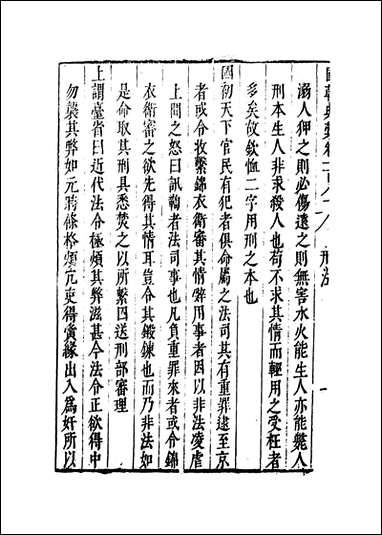 國朝典彙卷一百八十二 刑法 一
溺人狎之則必傷遠之則無害水火能生人亦能斃人
刑本生人非求殺人也苟不求其情而輕用之受枉者
多矣故欽恤二字用刑之本也
國初天下官民有犯者俱命屬之法司其有重罪逮至京
者或令收繫錦衣衛審其情辭用事者因以非法凌虐
上聞之怒曰訊鞫者法司事也凡負重罪來者或令錦
衣衛審之欲先得其情耳豈令其鍛鍊也而乃非法如
是命取其刑具悉焚之以所繫囚送刑部審理
上謂臺省曰近代法令極煩其弊滋甚今法令正欲得中
勿襲其弊如元時條格煩冗吏得夤緣出入為奸所以